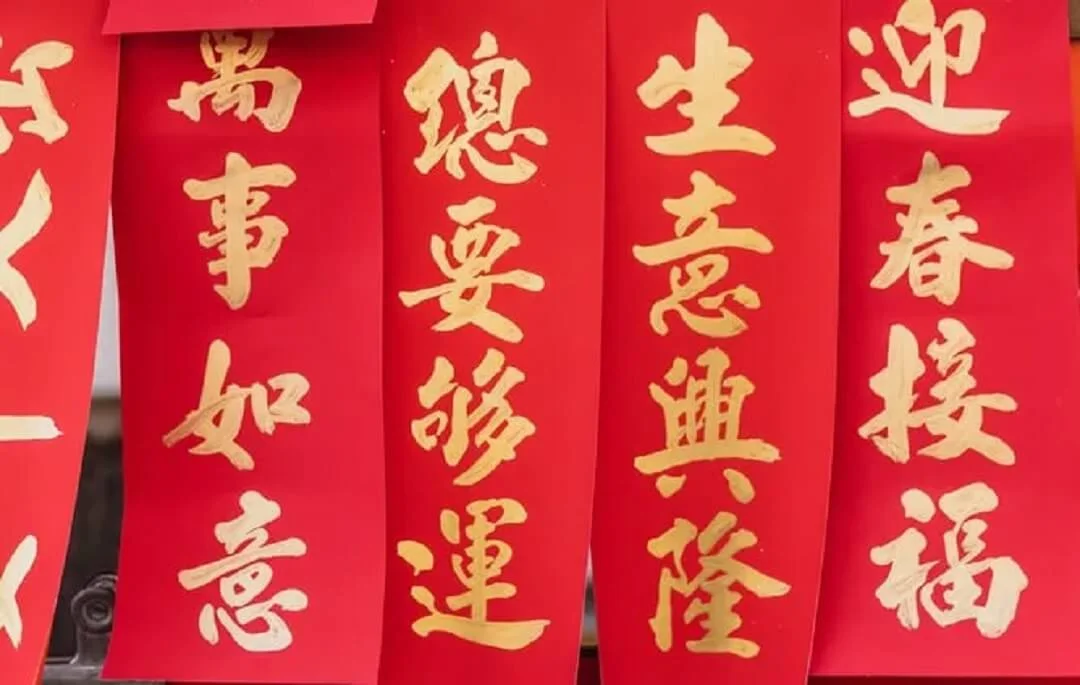 迎春接福
生意興隆
總要够運
萬事如意